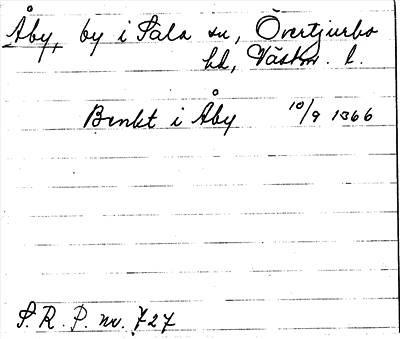 Åby, by i Sala sn, Övertjurbo
hd, Västm. l.
Benkt i Åby 10/9 1366
S.R.P. nr. 727